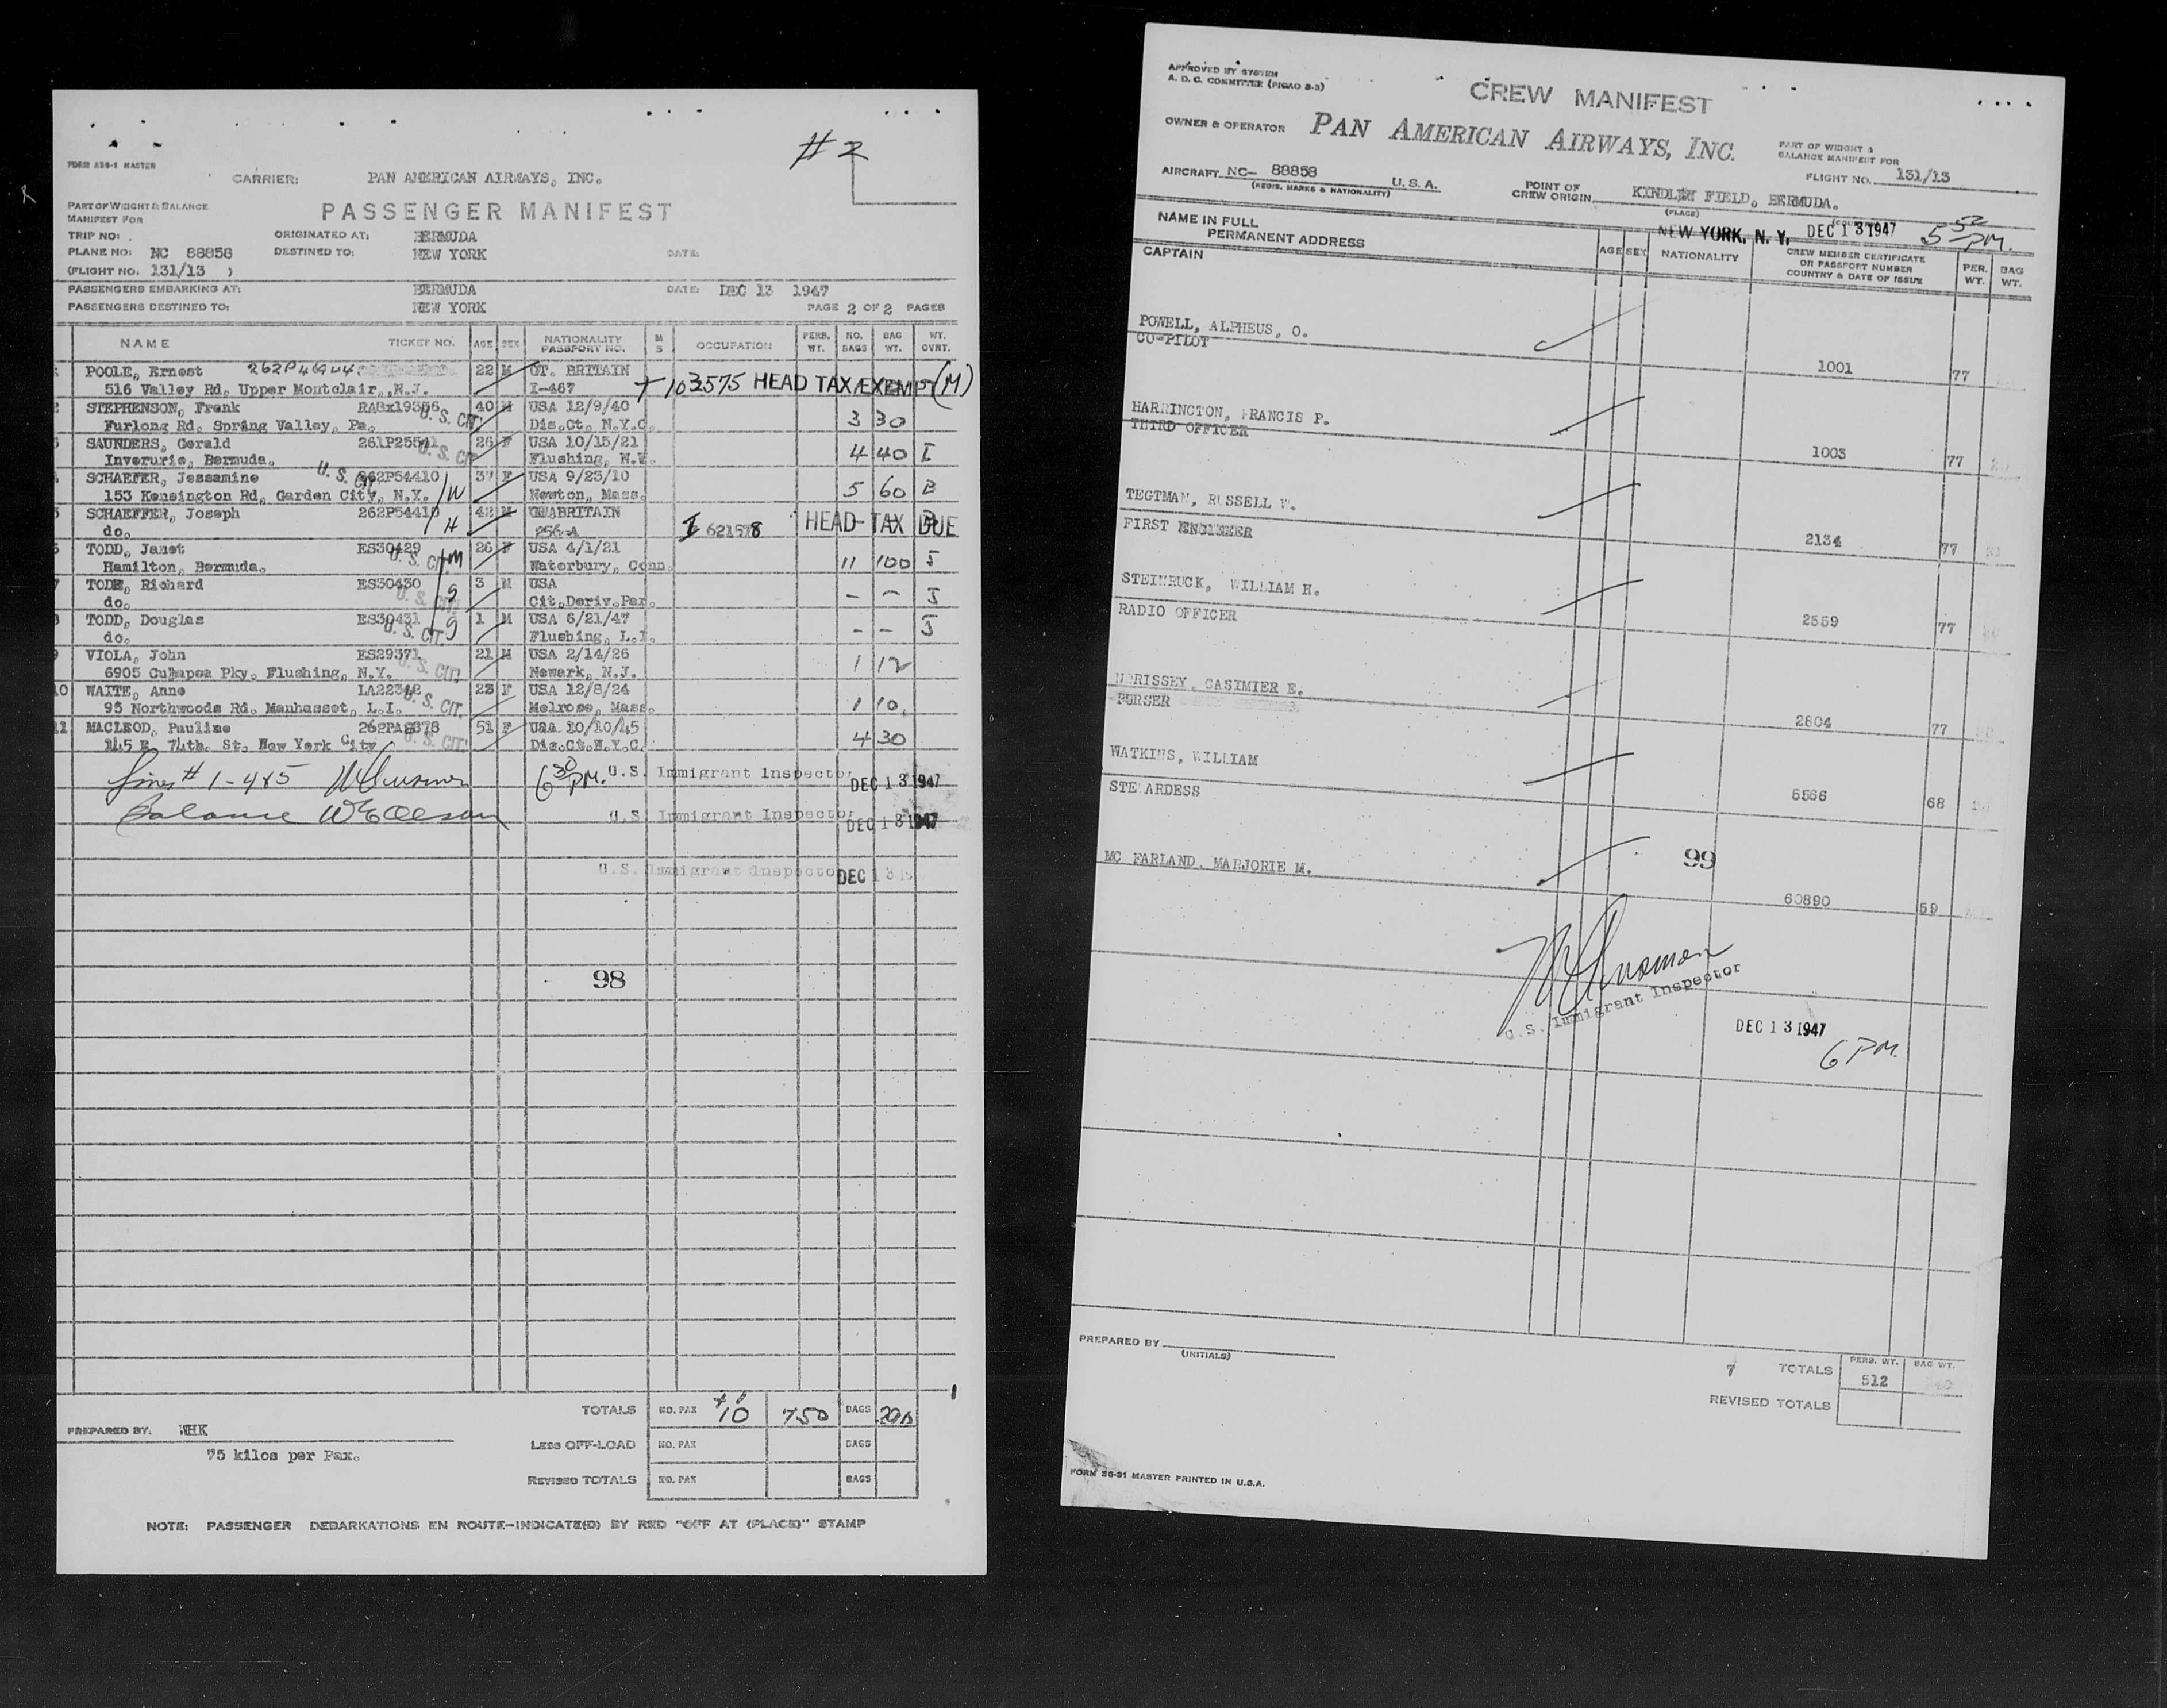 #2
FORM 236-1 MASTER
CARRIER: PAN AMERICAN AIRWAYS, INC.
PART OF WEIGHT & BALANCE
MANIFEST FOR
PASSENGER MANIFEST
TRIP NO: ORIGINATED AT: BERMUDA
PLANE NO: NC 88858 DESTINED TO: NEW YORK DATE:
(FLIGHT NO. 131/13 )
PASSENGERS EMBARKING AT: BERMUDA DATE: DEC 13 1947
PASSENGERS DESTINED TO: NEW YORK PAGE 2 OF 2 PAGES
NAME TICKET NO. AGE SEX NATIONALITY PASSPORT NO. M S OCCUPATION PERS. WT. NO. BAGS BAG WT. WT. OVRT.
POOLE, Ernest 22 M GT. BRITAIN
516 Valley Rd, Upper Montclair, N.J. I-467 103575 HEAD TAX EXEMPT (M)
2 STEPHENSON, Frank U.S. CIT. 40 M USA 12/9/40
Furlong Rd, Spring Valley, Pa. Dis.Ct. N.Y.C. 3 30
SAUNDERS, Gerald 261P25541 U.S. CIT 26 F USA 10/15/21
Inverurie, Bermuda. Flushing, N.Y. 4 40 I
SCHAEFER, Jessamine U.S. CIT 262P54410 37 F USA 9/23/10
153 Kensington Rd, Garden City, N.Y. W Newton, Mass. 5 60 B
SCHAEFFER, Joseph 262P54410 42 M BRITAIN
do. H 256-A I 621578 HEAD TAX DUE
TODD, Janet ES30429 U.S. CIT M 26 F USA 4/1/21
Hamilton, Bermuda. Waterbury, Conn. 11 100 J
7 TODD, Richard ES30430 U.S. CIT S 3 M USA
do. Cit.Deriv.Par. - - J
TODD, Douglas ES30431 U.S. CIT S 1 M USA 6/21/47
do. Flushing, L.I. - - J
VIOLA, John ES29371 U.S. CIT. 21 M USA 2/14/26
6905 Pky. Flushing, N.Y. Newark, N.J. 1 12
10 WAITE, Anne U.S. CIT. 23 F USA 12/8/24
95 Northwoods Rd. Manhasset, L.I. Melrose, Mass. 1 10
11 MACLEOD, Pauline U.S. CIT. 51 F USA 10/10/45
145 E. 74th. St. New York City Dis.Ct.N.Y.C. 4 30
lines # 1-4&5 6 30 PM. U.S. Immigrant Inspector DEC 13 1947
Balance U.S. Immigrant Inspector DEC 13 1947
U.S. Immigrant Inspector DEC 13
98
TOTALS NO. PAX 10 750 BAGS
PREPARED BY. WHK
Less OFF-LOAD NO. PAX BAGS
75 kilos per Pax.
Revised TOTALS NO. PAX BAGS
NOTE: PASSENGER DEBARKATIONS EN ROUTE-INDICATE(D) BY RED "OFF AT (PLACE)" STAMP
APPROVED BY SYSTEM
A. D. C. COMMITTEE (PICAO 8-3)
CREW MANIFEST
OWNER & OPERATOR PAN AMERICAN AIRWAYS, INC.
PART OF WEIGHT &
BALANCE MANIFEST FOR
FLIGHT NO. 131/13
AIRCRAFT NC- 88858 U.S.A.
(REGIS. MARKS & NATIONALITY)
POINT OF
CREW ORIGIN KINDLEY FIELD, BERMUDA.
(PLACE) (COUNTRY)
NEW YORK, N. Y. DEC 13 1947 5 52 PM.
NAME IN FULL
PERMANENT ADDRESS AGE SEX NATIONALITY CREW MEMBER CERTIFICATE OR PASSPORT NUMBER COUNTRY & DATE OF ISSUE PER. WT. BAG WT.
CAPTAIN
POWELL, ALPHEUS, O. 1001 77
CO-PILOT
HARRINGTON, FRANCIS P. 1003 77
THIRD OFFICER
TEGTMAN, RUSSELL W. 2134 77
FIRST ENGINEER
STEINRUCK, WILLIAM H. 2559 77
RADIO OFFICER
MORISSEY, CASIMIER E. 2804 77
PURSER
WATKINS, WILLIAM 6566 68
STEWARDESS
MC FARLAND, MARJORIE M. 60890 59
99
U.S. Immigrant Inspector
DEC 13 1947
6 PM.
PREPARED BY
(INITIALS)
7 TOTALS PERS. WT. 512 BAG WT.
REVISED TOTALS
FORM 36-91 MASTER PRINTED IN U.S.A.